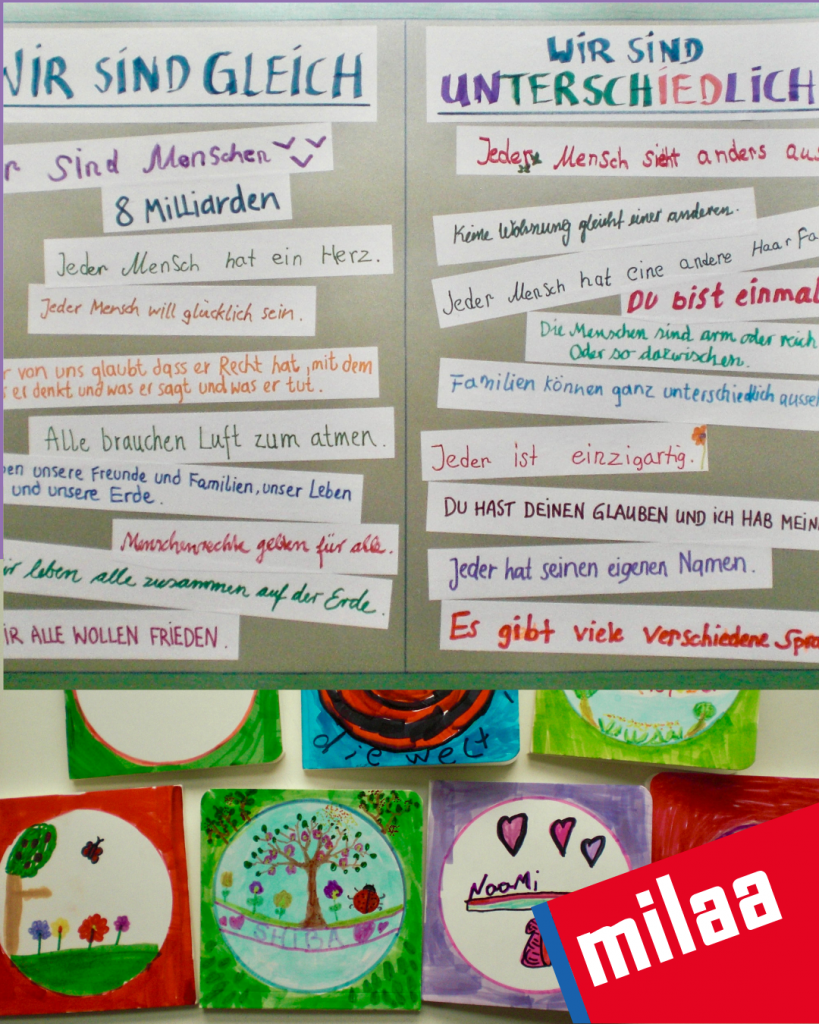 WIR SIND GLEICH
sind Menschen
8 Milliarden
Jeder Mensch hat ein Herz.
Jeder Mensch will glücklich sein.
r von uns glaubt dass er Recht hat, mit dem
er denkt und was er sagt und was er tut.
Alle brauchen Luft zum atmen.
en unsere Freunde und Familien, unser Leben
und unsere Erde.
Menschenrechte gelten für alle.
ir leben alle zusammen auf der Erde.
IR ALLE WOLLEN FRIEDEN.
WIR SIND
UNTERSCHIEDLICH
Jeder Mensch sieht anders aus
Keine Wohnung gleicht einer anderen.
Jeder Mensch hat eine andere Haar Fa
Du bist einmal
Die Menschen sind arm oder reich
Oder so dazwischen.
Familien können ganz unterschiedlich ausseh
Jeder ist einzigartig.
DU HAST DEINEN GLAUBEN UND ICH HAB MEIN
Jeder hat seinen eigenen Namen.
Es gibt viele verschiedene Spra
die welt
SHIBA
NAOMi
milaa